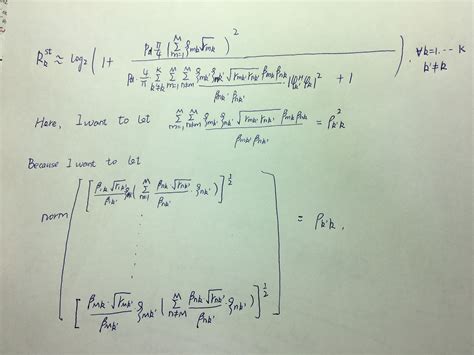 R_k^{st} ≈ log_2 ( 1 + \frac{P_d \frac{π}{4} ( \sum_{m=1}^{M} ξ_{mk} \sqrt{r_{mk}} )^2}{P_d \cdot \frac{4}{π} \sum_{k'≠k}^{K} \sum_{m=1}^{M} \sum_{n≠m}^{M} \frac{ξ_{mk'} ξ_{nk'} \sqrt{r_{mk'} r_{nk'}} β_{mk} β_{nk}}{β_{mk'} β_{nk'}} |φ_{k'}^H φ_k|^2 + 1} ) , ∀k=1,⋯ K
k'≠k
Here, I want to let \sum_{m=1}^{M} \sum_{n≠m}^{M} \frac{ξ_{mk'} ξ_{nk'} \sqrt{r_{mk'} r_{nk'}} β_{mk} β_{nk}}{β_{mk'} β_{nk'}} = ρ_{k'k}^2
Because I want to let
norm [ [ \frac{β_{1k} \sqrt{r_{1k'}}}{β_{1k'}} ξ_{1k'} ( \sum_{n≠1}^{M} \frac{β_{nk} \sqrt{r_{nk'}}}{β_{nk'}} ξ_{nk'} ) ]^{\frac{1}{2}}
⋮
[ \frac{β_{Mk} \sqrt{r_{Mk'}}}{β_{Mk'}} ξ_{Mk'} ( \sum_{n≠M}^{M} \frac{β_{nk} \sqrt{r_{nk'}}}{β_{nk'}} ξ_{nk'} ) ]^{\frac{1}{2}} ] = ρ_{k'k}.